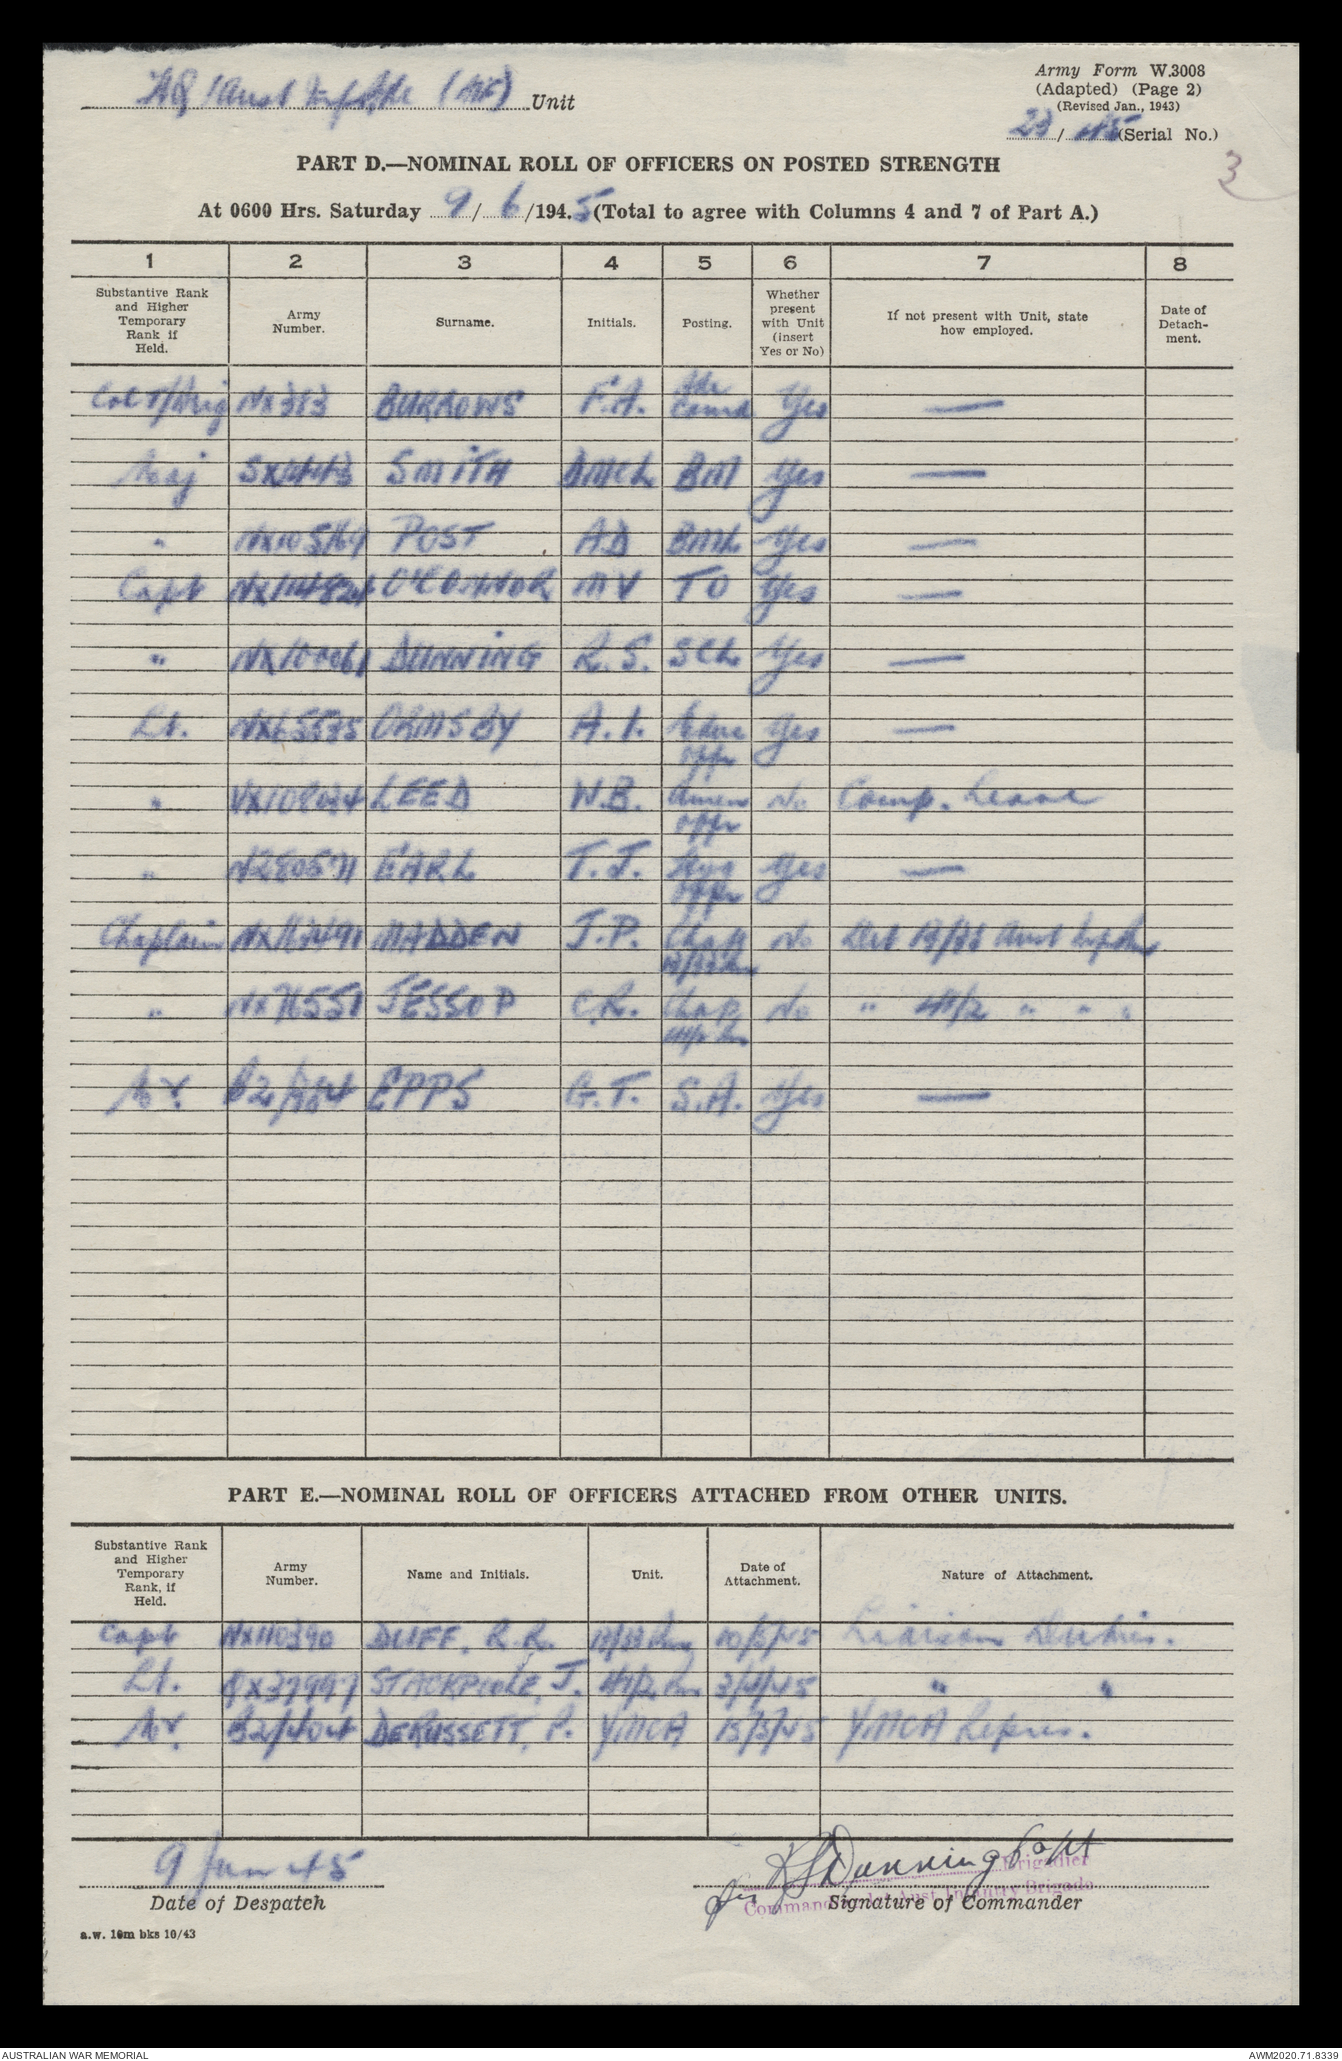 HQ 1 Aust Inf Bde (AIF) Unit
Army Form W.3008
(Adapted) (Page 2)
(Revised Jan., 1943)
23/45 (Serial No.)
3
PART D.—NOMINAL ROLL OF OFFICERS ON POSTED STRENGTH
At 0600 Hrs. Saturday 9/6/1945 (Total to agree with Columns 4 and 7 of Part A.)
1 2 3 4 5 6 7 8
Substantive Rank and Higher Temporary Rank if Held. Army Number. Surname. Initials. Posting. Whether present with Unit (insert Yes or No) If not present with Unit, state how employed. Date of Detachment.
Col T/Brig NX313 BURROWS F.A. Bde Comd Yes —
Maj SMITH DMCL BM Yes —
" POST AD Yes —
Capt O'CONNOR MV TO Yes —
" DUNNING R.S. SCL Yes —
Lt. ORMSBY A.I. offr Yes —
" LEED W.B. offr No Comp. Leave
" EARL T.J. offr Yes —
Chaplain MADDEN J.P. Chap No Det 13/33 Aust Inf Bn
" NX76551 JESSOP C.R. Chap No " 41/2 " " "
Mr. EPPS G.T. S.A. Yes —
PART E.—NOMINAL ROLL OF OFFICERS ATTACHED FROM OTHER UNITS.
Substantive Rank and Higher Temporary Rank, if Held. Army Number. Name and Initials. Unit. Date of Attachment. Nature of Attachment.
Capt NX110390 DUFF, R.R. 13/33 Bn 10/5/45 Liaison Duties.
Lt. QX37997 STACKPOOLE, J. 41/2 Bn 3/4/45 " "
Mr. DERUSSETT, P. YMCA 15/3/45 YMCA Repres.
9 Jun 45
Date of Despatch
for RSDunning Capt
Brigadier
Commander 1 Aust Infantry Brigade
Signature of Commander
a.w. 10m bks 10/43
AUSTRALIAN WAR MEMORIAL
AWM2020.71.8339